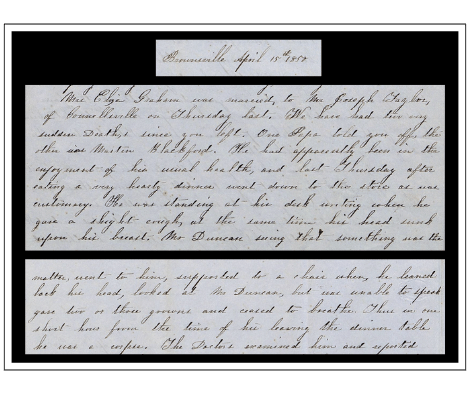 Brownsville April 15th 1850.
Miss Eliza Graham was married, to Mr Joseph Taylor,
of Connellsville on Thursday last. We have had two very
sudden Deaths since you left. One Papa told you off the
other was Martin Blackford. He had apparently been in the
enjoyment of his usual health, and last Thursday after
eating a very hearty dinner went down to the store as was
customary. He was standing at his desk writing when he
gave a slight cough, at the same time his head sunk
upon his breast. Mr Duncan seeing that something was the
matter, went to him, supported to a chair when, he leaned
back his head, looked at Mr Duncan, but was unable to speak
gave two or three groans and ceased to breathe. Thus in one
short hour from the time of his leaving the dinner table
he was a corpse. The Doctors examined him and reported